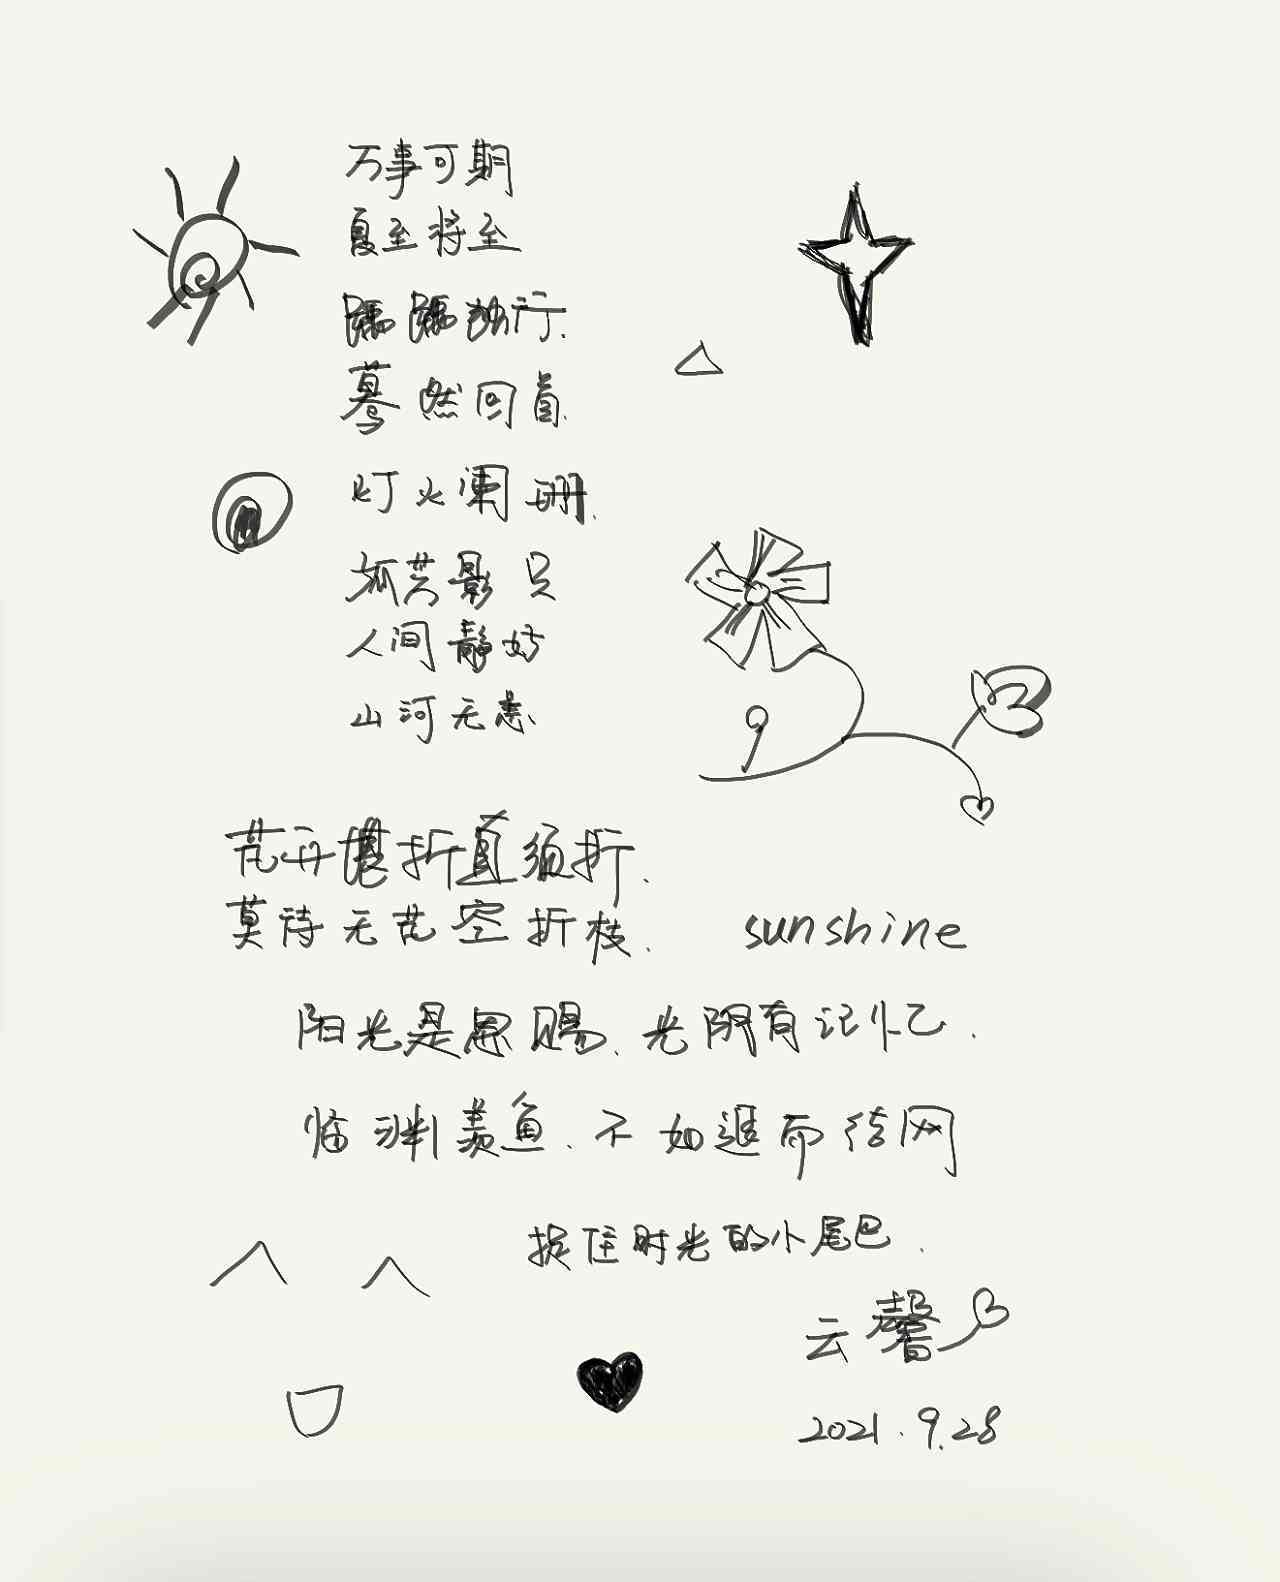 万事可期
夏至将至
踽踽独行.
蓦然回首.
灯火阑珊.
孤芳影只
人间静好
山河无恙.
花开堪折直须折.
莫待无花空折枝.
sunshine
阳光是恩赐、光阴有记忆.
临渊羡鱼、不如退而结网
捉住时光的小尾巴.
云馨
2021.9.28